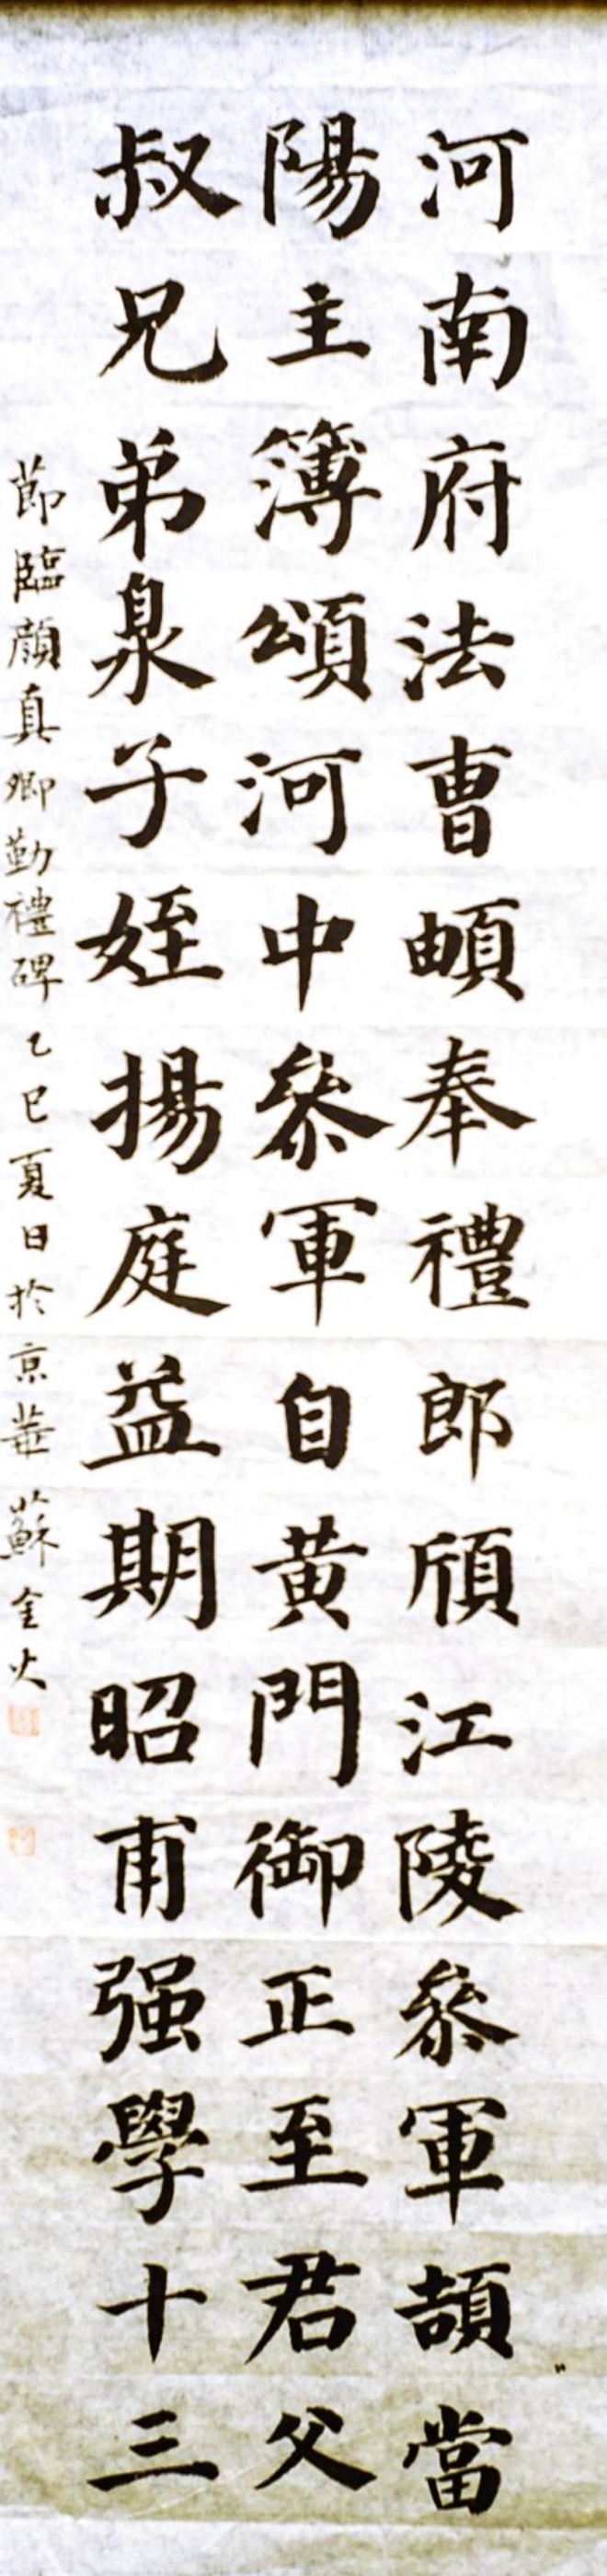 河南府法曹頔奉禮郎頎江陵參軍頡當
陽主簿頌河中參軍自黄門御正至君父
叔兄弟泉子姪揚庭益期昭甫强學十三
節臨顏真卿勤禮碑乙巳夏日於京華蘇金火